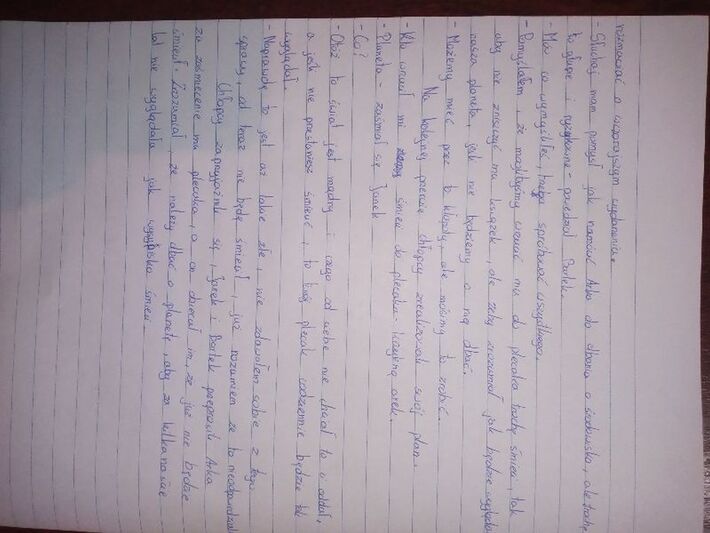 rozmawiać o wczorajszym wydarzeniu.
- Słuchaj mam pomysł jak namówić Arka do dbania o środowisko, ale trochę
to głupie i ryzykowne - powiedział Bartek.
- Mów co wymyśliłeś, trzeba spróbować wszystkiego.
- Pomyślałem, że moglibyśmy wrzucić mu do plecaka trochę śmieci, tak
aby nie zniszczyć mu książek, ale żeby zrozumiał jak będzie wyglądać
nasza planeta, jak nie będziemy o nią dbać.
- Możemy mieć przez to kłopoty, ale możemy to zrobić.
Na kolejnej przerwie chłopcy zrealizowali swój plan.
- Kto wrzucił mi śmieci do plecaka - krzyknął Arek.
- Planeta - zaśmiał się Jarek
- Co?
- Otóż to świat jest mądry i czego od siebie nie chciał to ci oddał,
a jeśli nie przestaniesz śmiecić, to twój plecak codziennie będzie tak
wyglądał.
- Naprawdę to jest aż takie złe, nie zdawałem sobie z tego
sprawy, od teraz nie będę śmiecił, już rozumiem że to nieodpowiedzial
Chłopcy zaprzyjaźnili się, Jarek i Bartek przeprosili Arka
za zaśmiecenie mu plecaka, a on obiecał im, że już nie będzie
śmiecił. Zrozumiał, że należy dbać o planetę, aby za kilkanaście
lat nie wyglądała jak wysypisko śmieci.